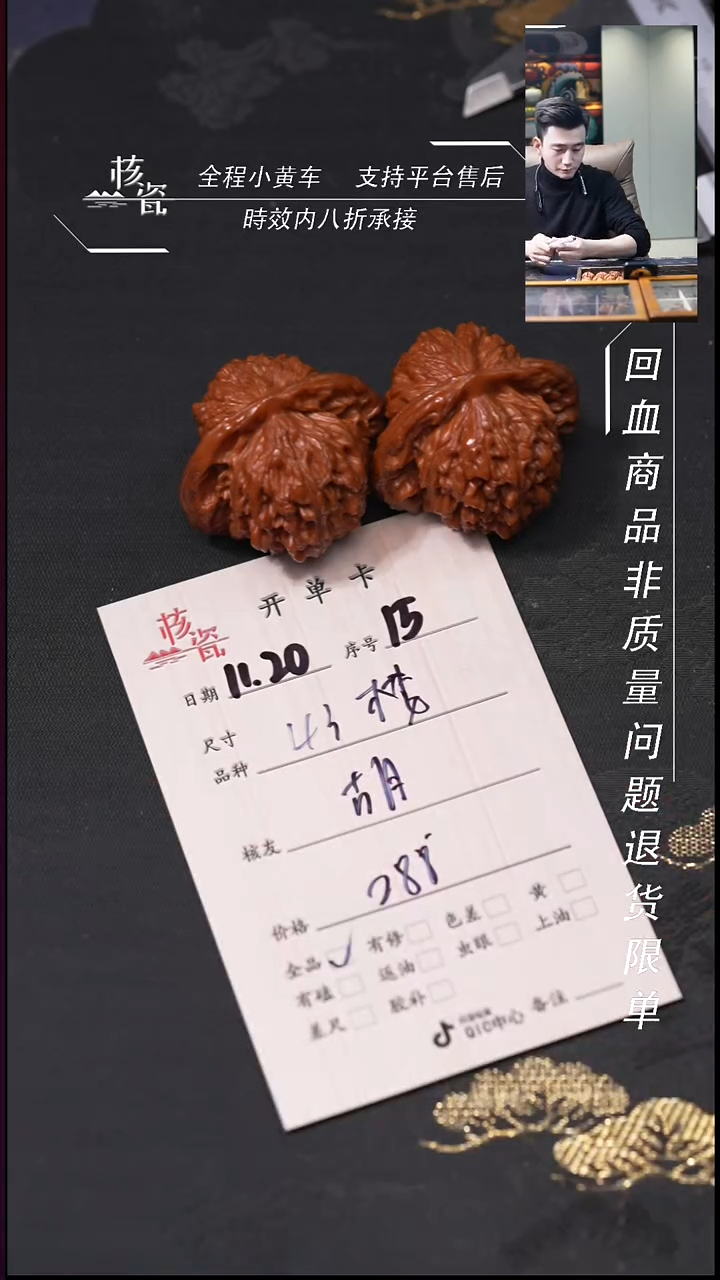 核瓷
全程小黄车 支持平台售后
時效内八折承接
回血商品非质量问题退货限单
核瓷
开单卡
日期 11.20 序号 15
尺寸
品种
胡
核友
价格 288
全品 有修 色差 黄
有磕 返油 虫眼 上油
差尺 胶补
QIC中心 备注